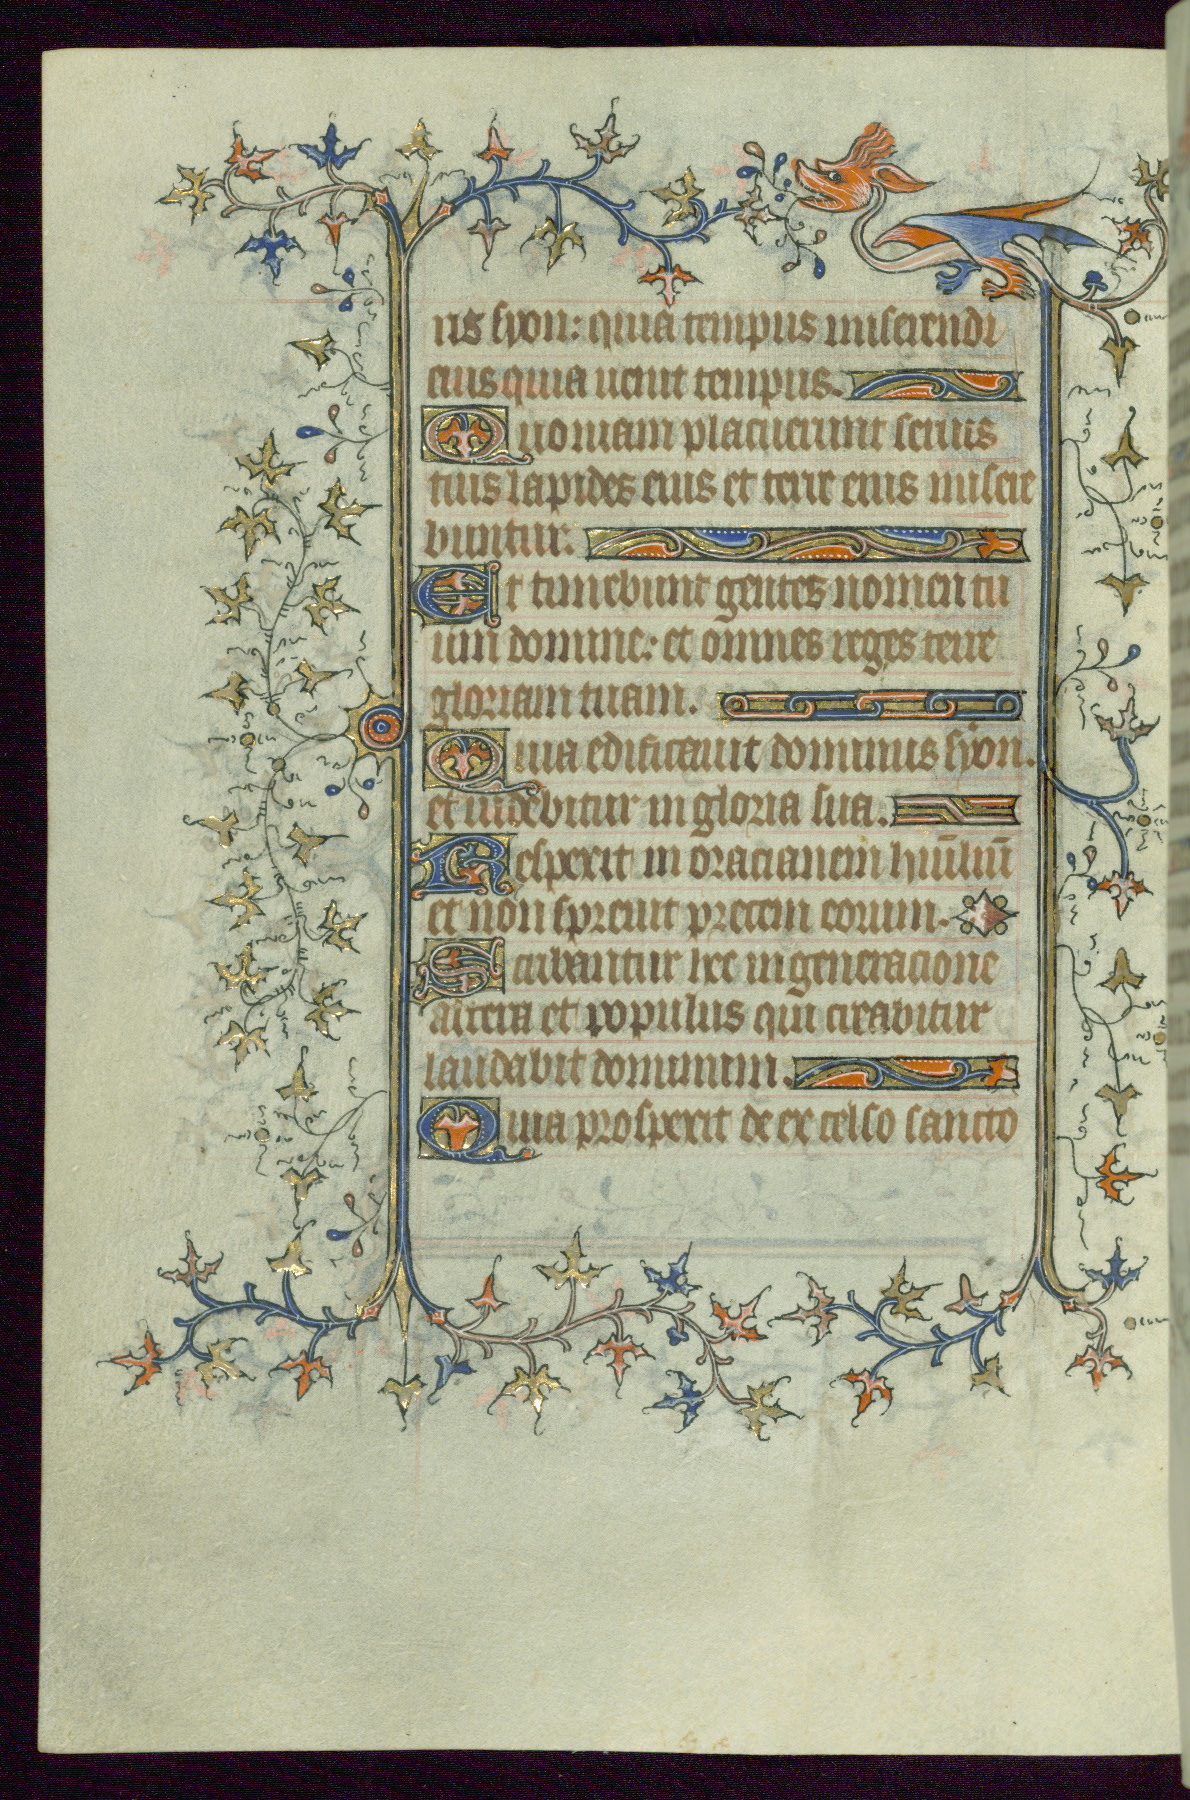 ris syon: quia tempus miserendi
eius quia uenit tempus.
Quoniam placuerunt seruis
tuis lapides eius et terre eius misere
buntur.
Et timebunt gentes nomen tu
um domine: et omnes reges terre
gloriam tuam.
Quia edificauit dominus syon.
et uidebitur in gloria sua.
Respexit in oracionem humiliū
et non spreuit precem eorum.
Scribantur hec in generacione
altera et populus qui creabitur
laudabit dominum.
Quia prospexit de excelso sancto